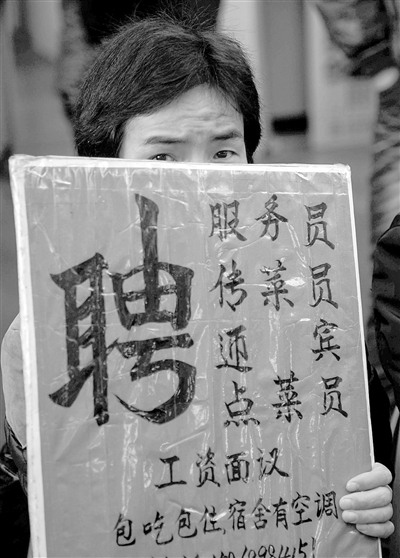 聘
服务员
传菜员
迎宾
点菜员
工资面议
包吃包住,宿舍有空调